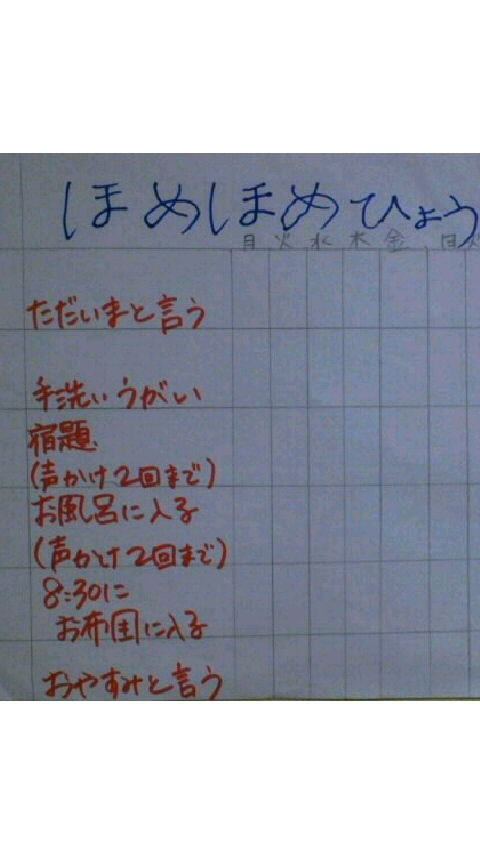 ほめほめひょう
月 火 水 木 金 月 火
ただいまと言う
手洗いうがい
宿題
(声かけ2回まで)
お風呂に入る
(声かけ2回まで)
8:30に
お布団に入る
おやすみと言う